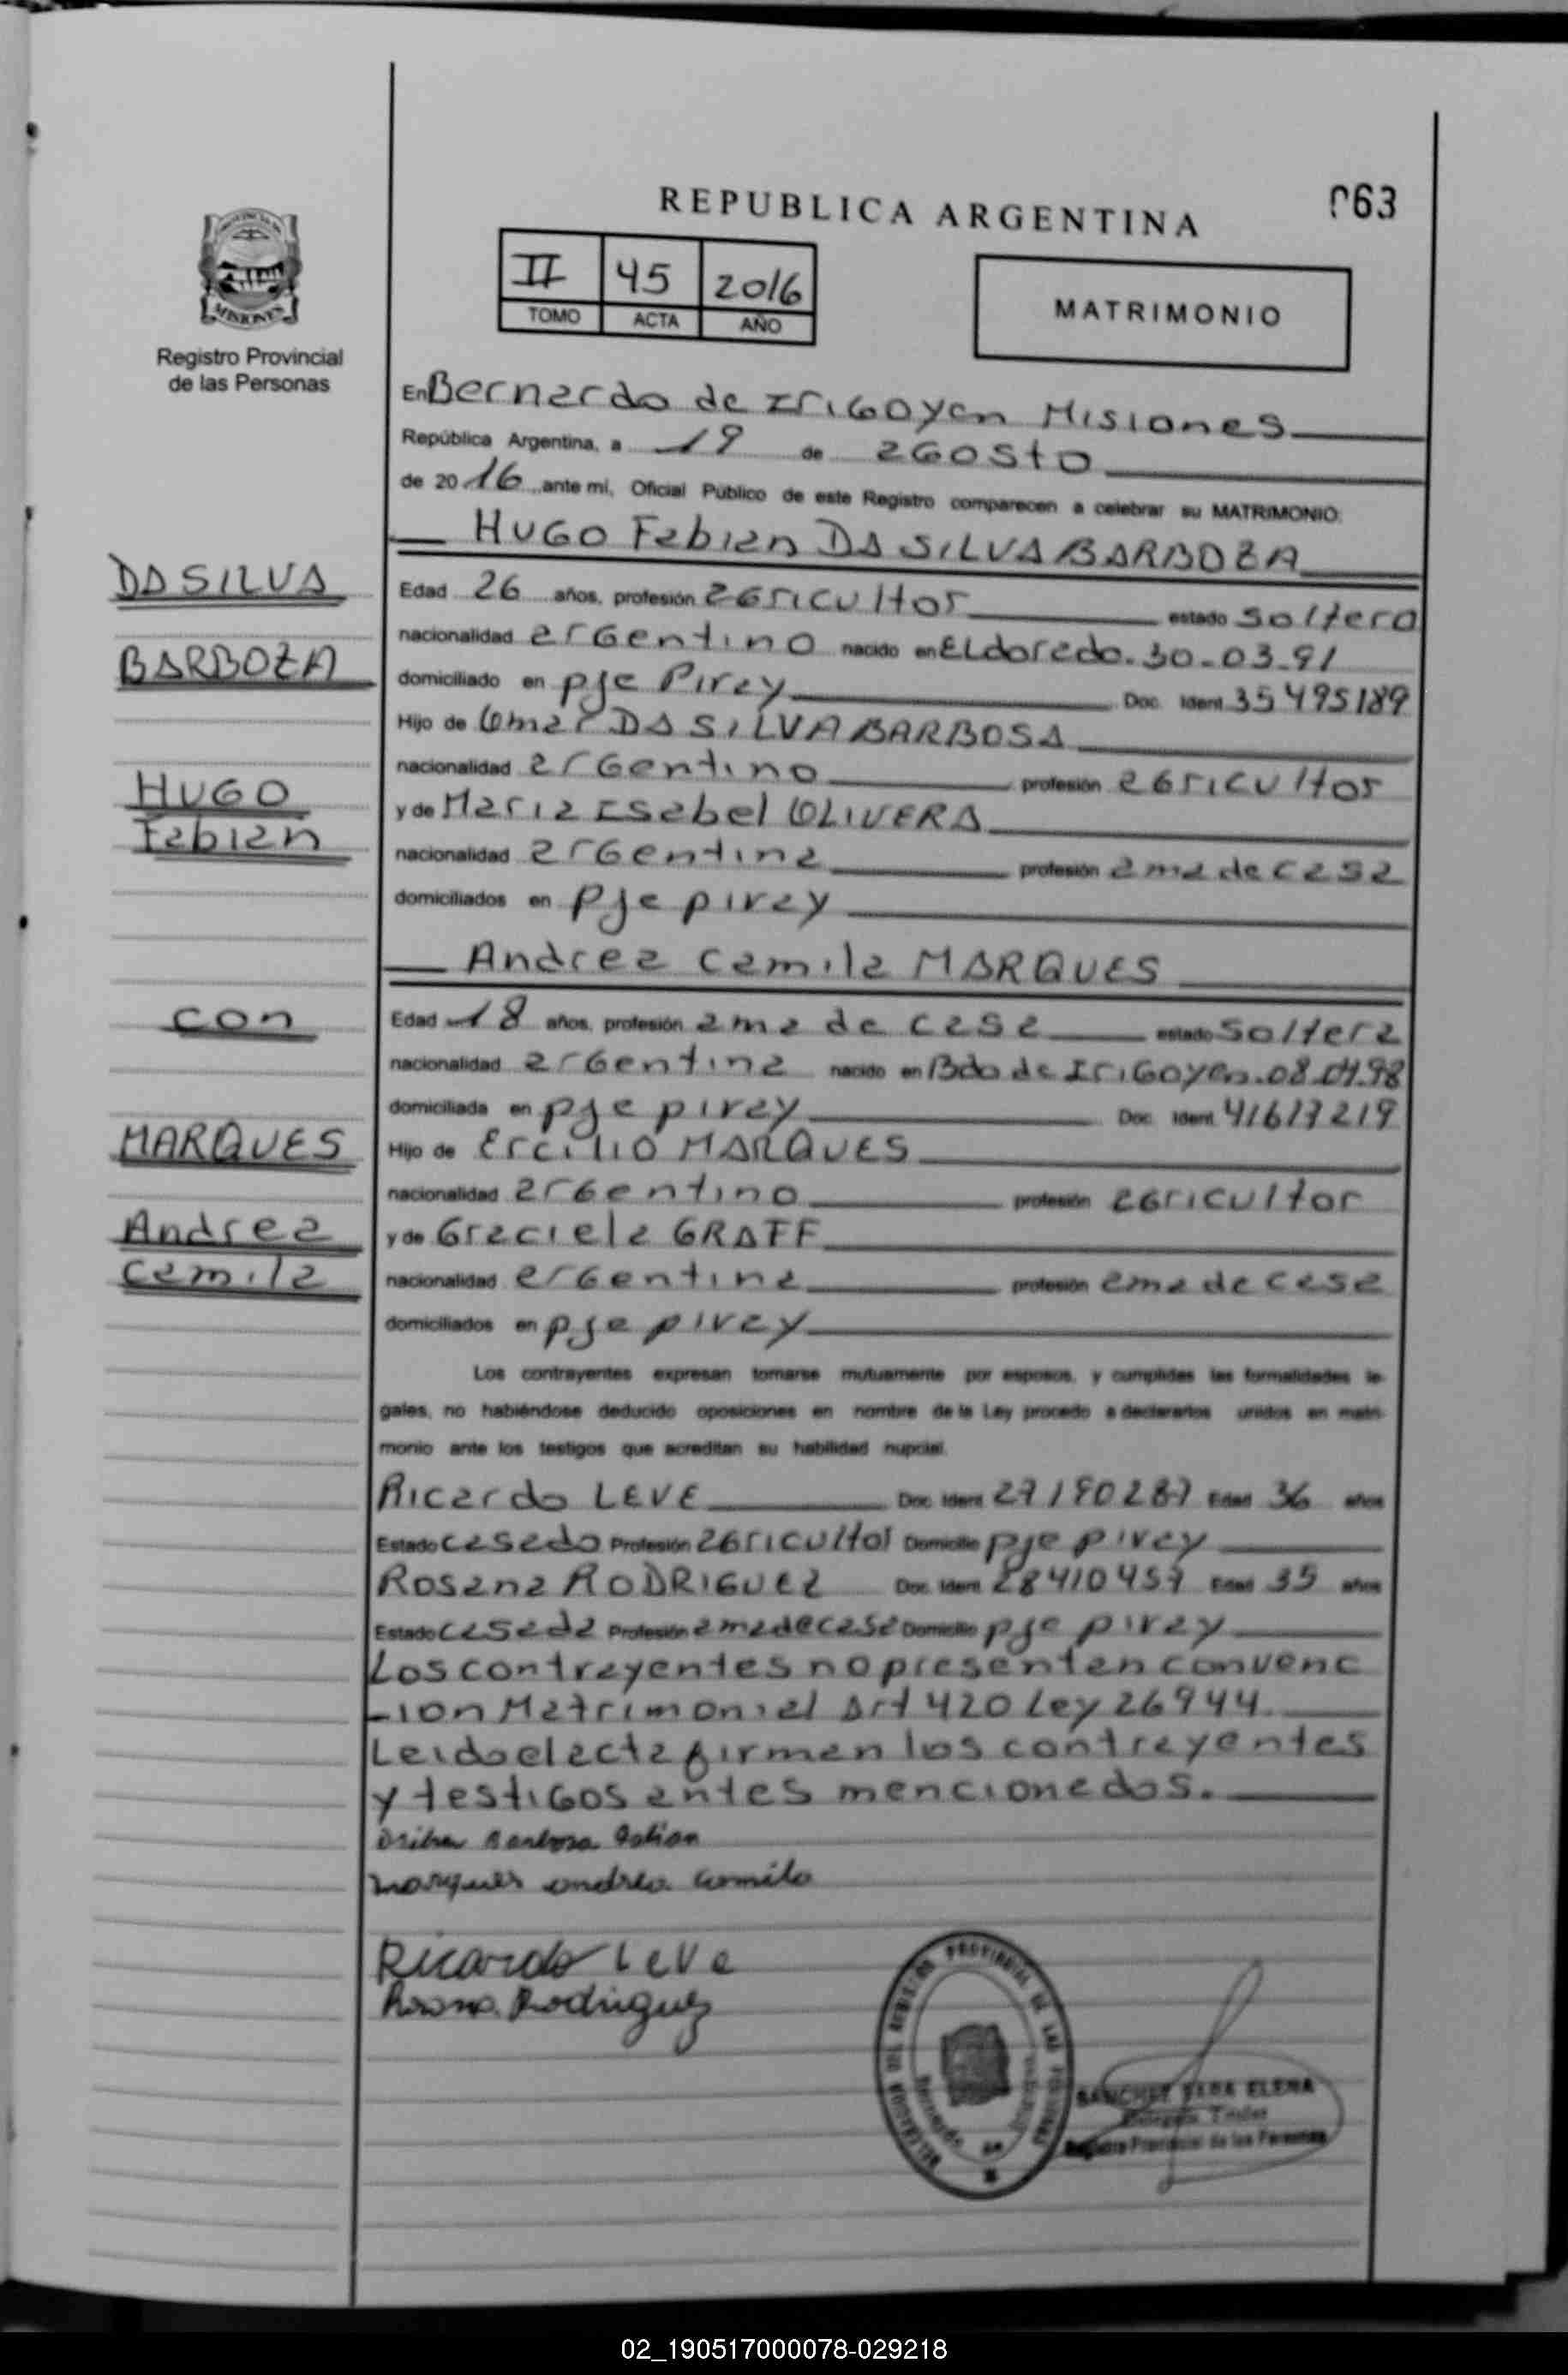 REPUBLICA ARGENTINA
063
PROVINCIA DE
MISIONES
Registro Provincial
de las Personas
II 45 2016
TOMO ACTA AÑO
MATRIMONIO
En Bernardo de Irigoyen Misiones
República Argentina, a 19 de agosto
de 2016, ante mí, Oficial Público de este Registro comparecen a celebrar su MATRIMONIO:
Hugo Fabian DA SILVA BARBOZA
DA SILVA
BARBOZA
Hugo
Fabian
con
MARQUES
Andrea
Camila
Edad 26 años, profesión agricultor estado soltero
nacionalidad argentino nacido en Eldorado. 30-03-91
domiciliado en pje Piray Doc. Ident. 35495189
Hijo de Omar DA SILVA BARBOSA
nacionalidad argentino profesión agricultor
y de Maria Isabel OLIVERA
nacionalidad argentina profesión ama de casa
domiciliados en Pje piray
Andrea Camila MARQUES
Edad 18 años, profesión ama de casa estado soltera
nacionalidad argentina nacido en Bdo de Irigoyen. 08.04.98
domiciliada en pje piray Doc. Ident. 41617219
Hijo de Ercilio MARQUES
nacionalidad argentino profesión agricultor
y de Graciela GRAFF
nacionalidad argentina profesión ama de casa
domiciliados en pje piray
Los contrayentes expresan tomarse mutuamente por esposos, y cumplidas las formalidades le-
gales, no habiéndose deducido oposiciones en nombre de la Ley procedo a declararlos unidos en matri-
monio ante los testigos que acreditan su habilidad nupcial.
Ricardo LEVE Doc. Ident. 27190287 Edad 36 años
Estado casado Profesión agricultor Domicilio pje piray
Rosana RODRIGUEZ Doc. Ident. 28410457 Edad 35 años
Estado casada Profesión ama de casa Domicilio pje piray
Los contrayentes no presentan convenc
-ion Matrimonial Art 420 Ley 26944.
Leido el acta firman los contrayentes
y testigos antes mencionados.
Barbosa
Marques andrea camila
Ricardo Leve
Rosana Rodriguez
PROVINCIAL DE LAS PERSONAS
SANCHEZ ELENA
Titular
Registro Provincial de las Personas
02_190517000078-029218